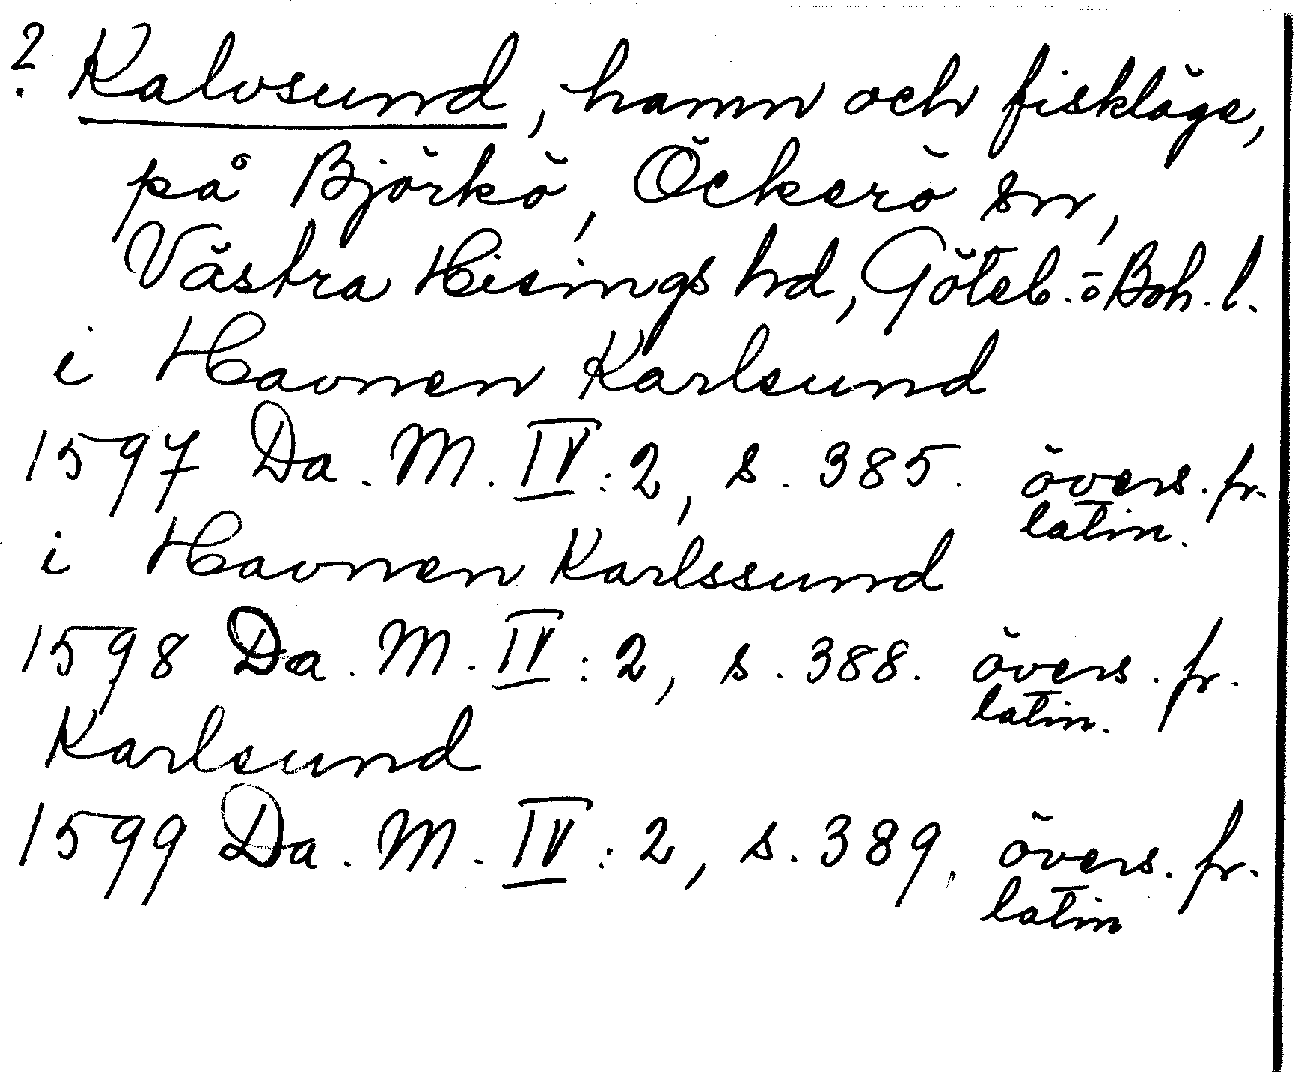 ? Kalvsund, hamn och fiskläge,
på Björkö, Öckerö sn,
Västra Hisings hd, Göteb. o Boh. l.
i Havnen Karlsund
1597 Da. M. IV:2, s. 385. övers. fr. latin.
i Havnen Karlssund
1598 Da. M. IV:2, s. 388. övers. fr. latin.
Karlsund
1599 Da. M. IV:2, s. 389. övers. fr. latin